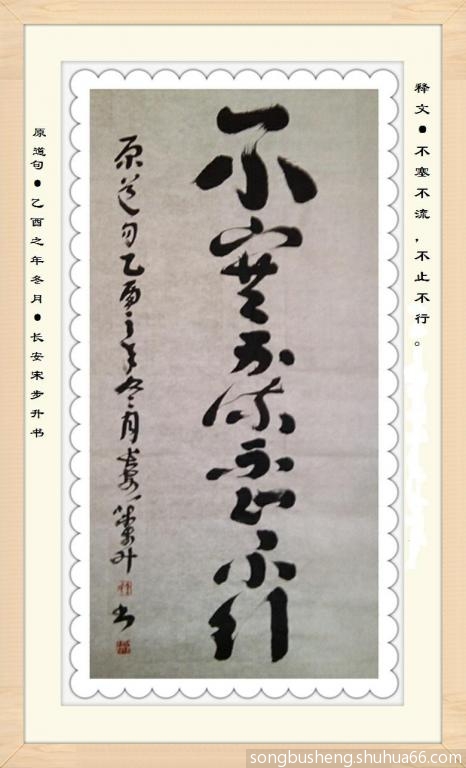 释文●不塞不流，不止不行。
不塞不流不止不行
原道句乙酉之年冬月长安宋步升
书
原道句●乙酉之年冬月●长安宋步升书
songbusheng.shuhua66.com